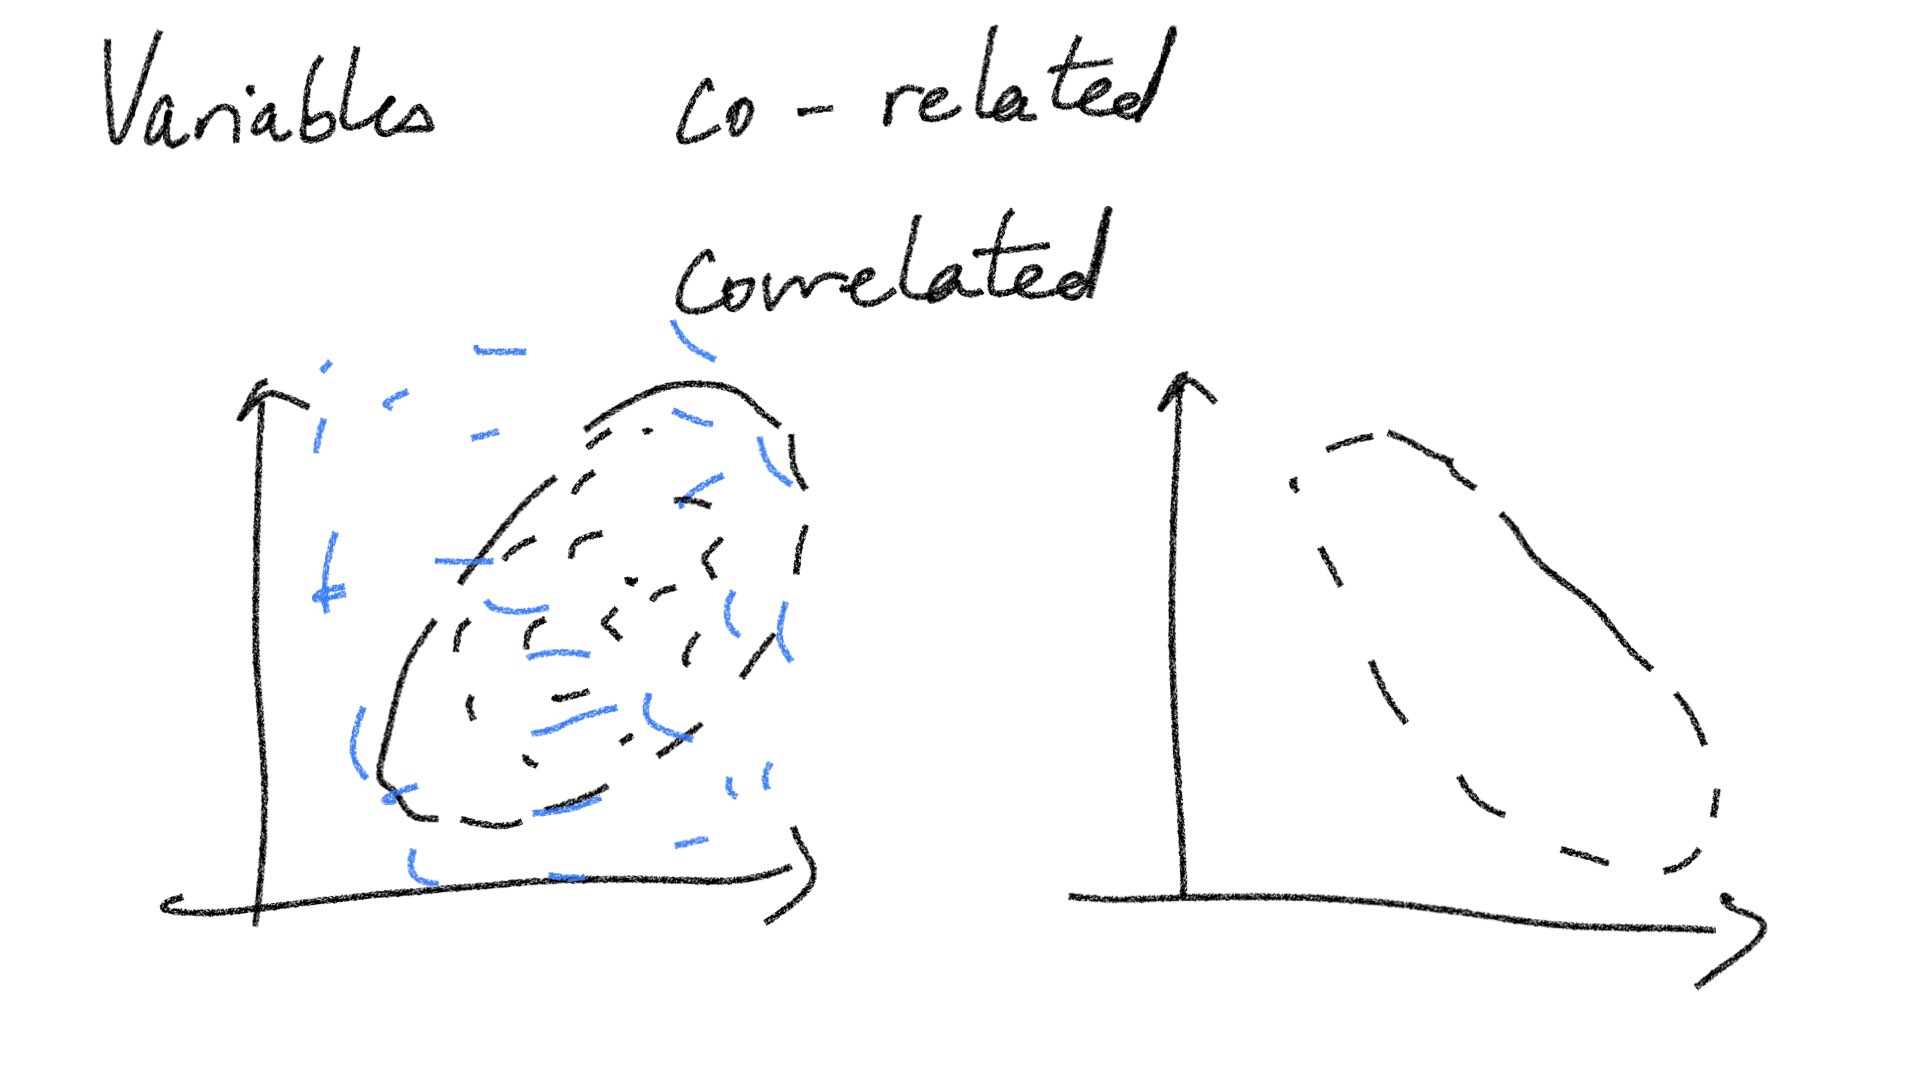 Variables co - related
correlated